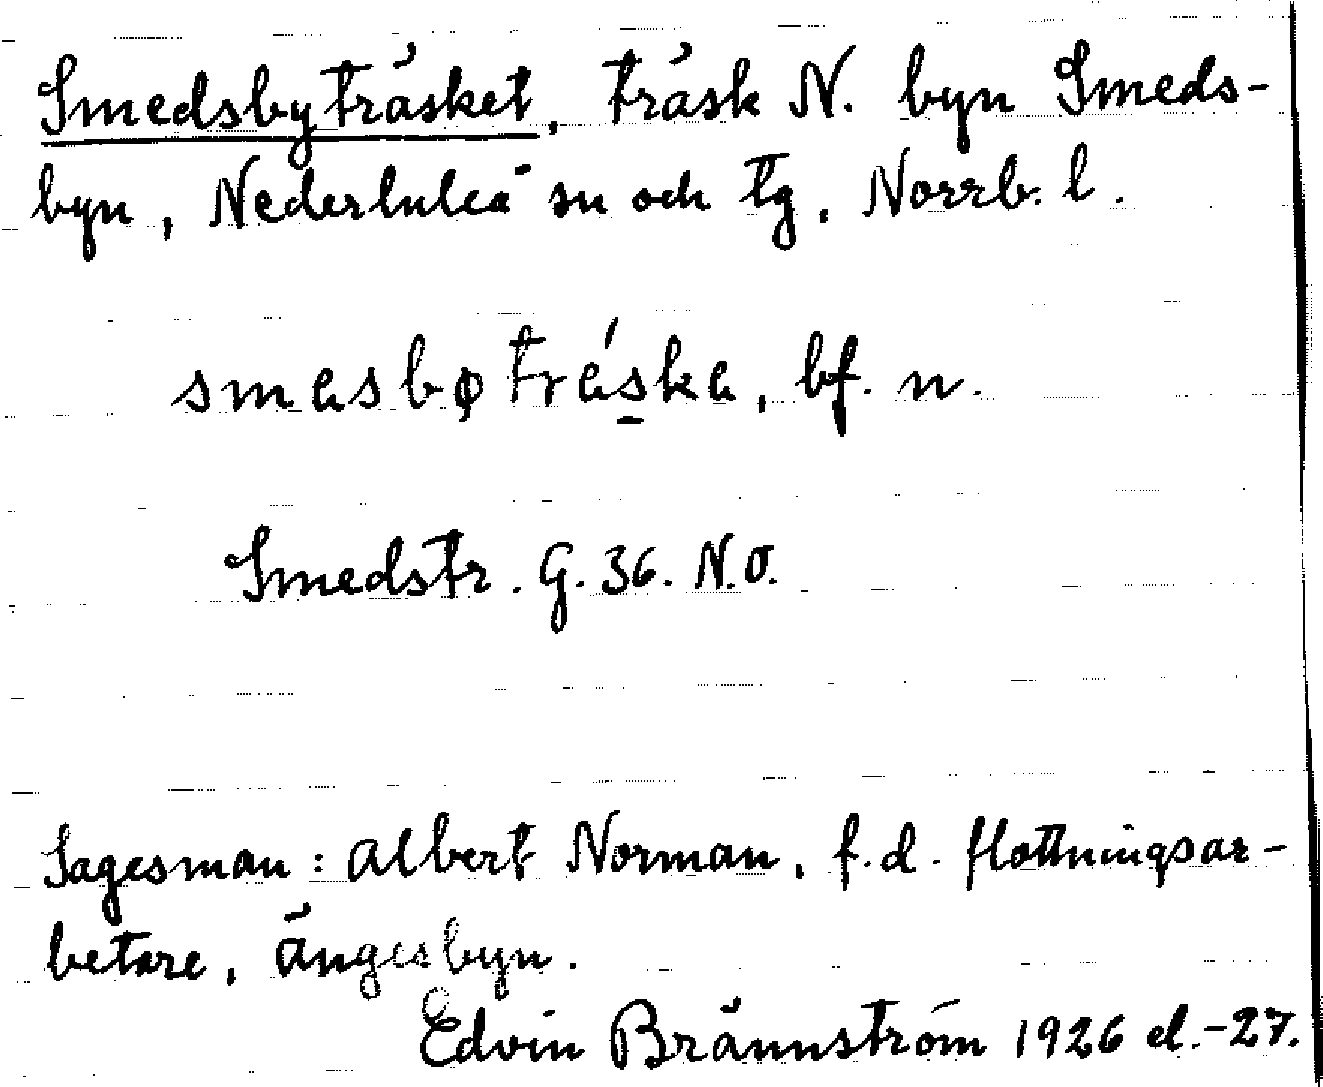 Smedsbyträsket, träsk N. byn Smeds-
byn, Nederluleå sn och tg, Norrb. l.
smasbøtráska, bf. n.
Smedstr. G. 36. N.O.
Sagesman: Albert Norman, f.d. flottningsar-
betare, Ängesbyn.
Edvin Brännström 1926 el. -27.